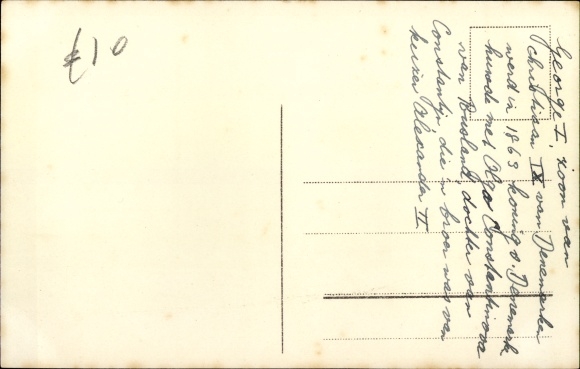 £10
George I, zoon van
Christiaan IX van Denemarken
werd in 1863 koning v. Denemark
huwde met Olga Constantinova
van Rusland, dochter van
Constantijn, die 'n broer was van
keizer Alexander II.